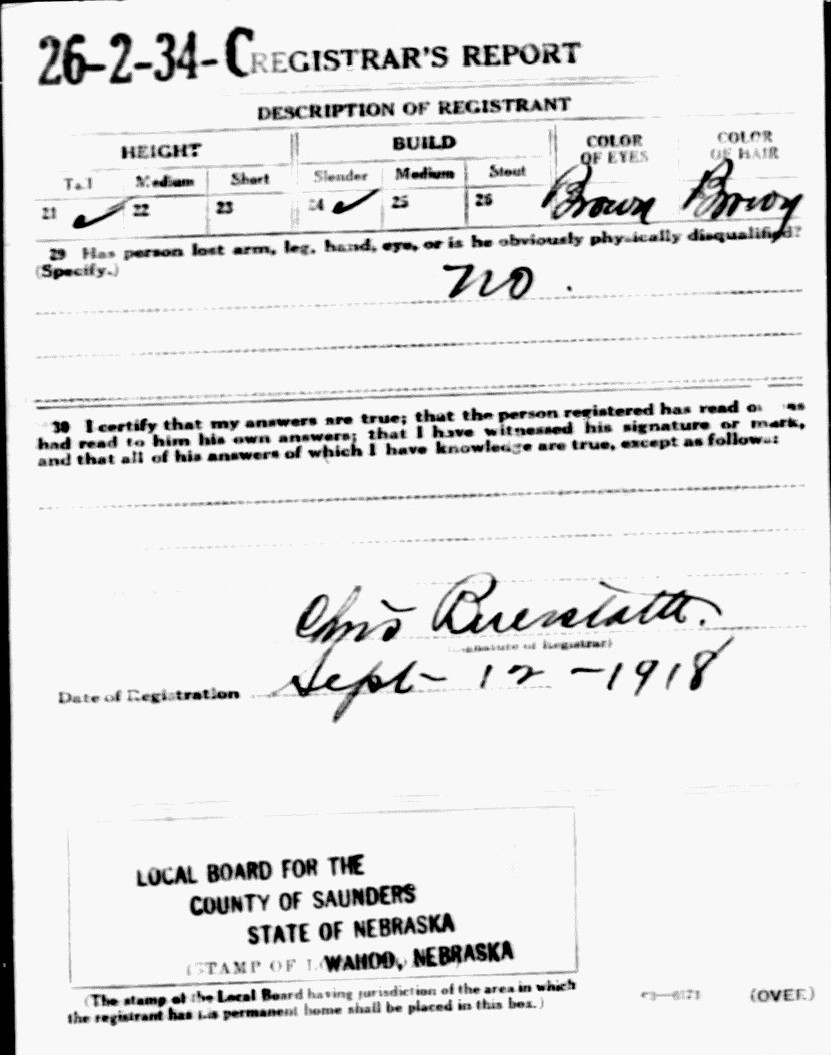 26-2-34-C REGISTRAR'S REPORT
DESCRIPTION OF REGISTRANT
HEIGHT BUILD COLOR OF EYES COLOR OF HAIR
Tall Medium Short Slender Medium Stout
21 ✓ 22 23 24 ✓ 25 26 Brown Brown
29 Has person lost arm, leg, hand, eye, or is he obviously physically disqualified?
(Specify.)
No.
30 I certify that my answers are true; that the person registered has read or has
had read to him his own answers; that I have witnessed his signature or mark,
and that all of his answers of which I have knowledge are true, except as follows:
Chris
(Signature of Registrar)
Date of Registration Sept- 12-1918
LOCAL BOARD FOR THE
COUNTY OF SAUNDERS
STATE OF NEBRASKA
(STAMP OF L WAHOO, NEBRASKA
(The stamp of the Local Board having jurisdiction of the area in which
the registrant has his permanent home shall be placed in this box.)
(OVER)